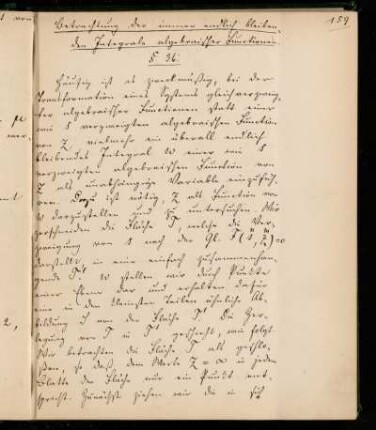 159
Betrachtung der immer endlich bleiben-
den Integrale algebraischer Functionen
§. 36.
Häufig ist es zweckmäßig, bei der
Transformation eines Systems gleichverzweig-
ter algebraischer Functionen statt einer
wie s verzweigten algebraischen Function
von z, vielmehr ein überall endlich
bleibendes Integral w einer wie s
verzweigten algebraischen Function von
z als unabhängige Variable einzufüh-
ren. Dazu ist nötig, z als Function von
w darzustellen und zu untersuchen. Wir
zerschneiden die Fläche T, welche die Ver-
zweigung von s nach der Gl. F(s, z) = 0
darstellt, in eine einfach zusammenhän-
gende T'. w stellen wir durch Punkte
einer Ebene dar und erhalten dafür
eine in den kleinsten Teilen ähnliche Ab-
bildung von der Fläche T'. Die Zer-
legung von T in T' geschieht, wie folgt
Wir betrachten die Fläche T als geschlo-
ßen, so daß dem Werte z = ∞ in jedem
Blatte der Fläche nur ein Punkt ent-
spricht. Zunächst ziehen wir die in sich